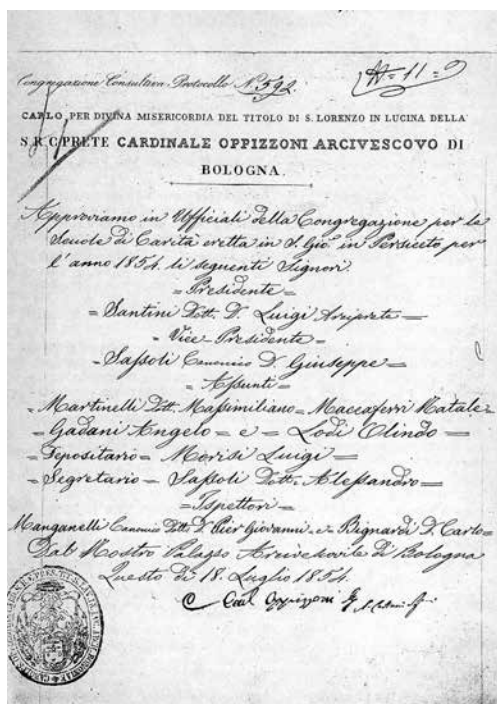 Congregazione Consultiva. Protocollo N. 592.
A = 11 =
CARLO PER DIVINA MISERICORDIA DEL TITOLO DI S. LORENZO IN LUCINA DELLA
S. R. C. PRETE CARDINALE OPPIZZONI ARCIVESCOVO DI
BOLOGNA.
Approviamo in Ufficiali della Congregazione per le
Scuole di Carità eretta in S. Gio. in Persiceto per
l'anno 1854. li seguenti Signori.
= Presidente =
= Santini Dott. D. Luigi Arciprete =
= Vice-Presidente =
= Sassoli Canonico D. Giuseppe =
= Assunti =
= Martinelli Dott. Massimiliano = Maccaferri Natale =
= Gadani Angelo = e = Lodi Olindo =
= Depositario = Morisi Luigi =
= Segretario = Sassoli Dott. Alessandro =
= Ispettori =
Manganelli Canonico Dott. D. Pier Giovanni = e = Bignardi D. Carlo =
Dal Nostro Palazzo Arcivescovile di Bologna
Questo dì 18. Luglio 1854.
C Card Oppizzoni